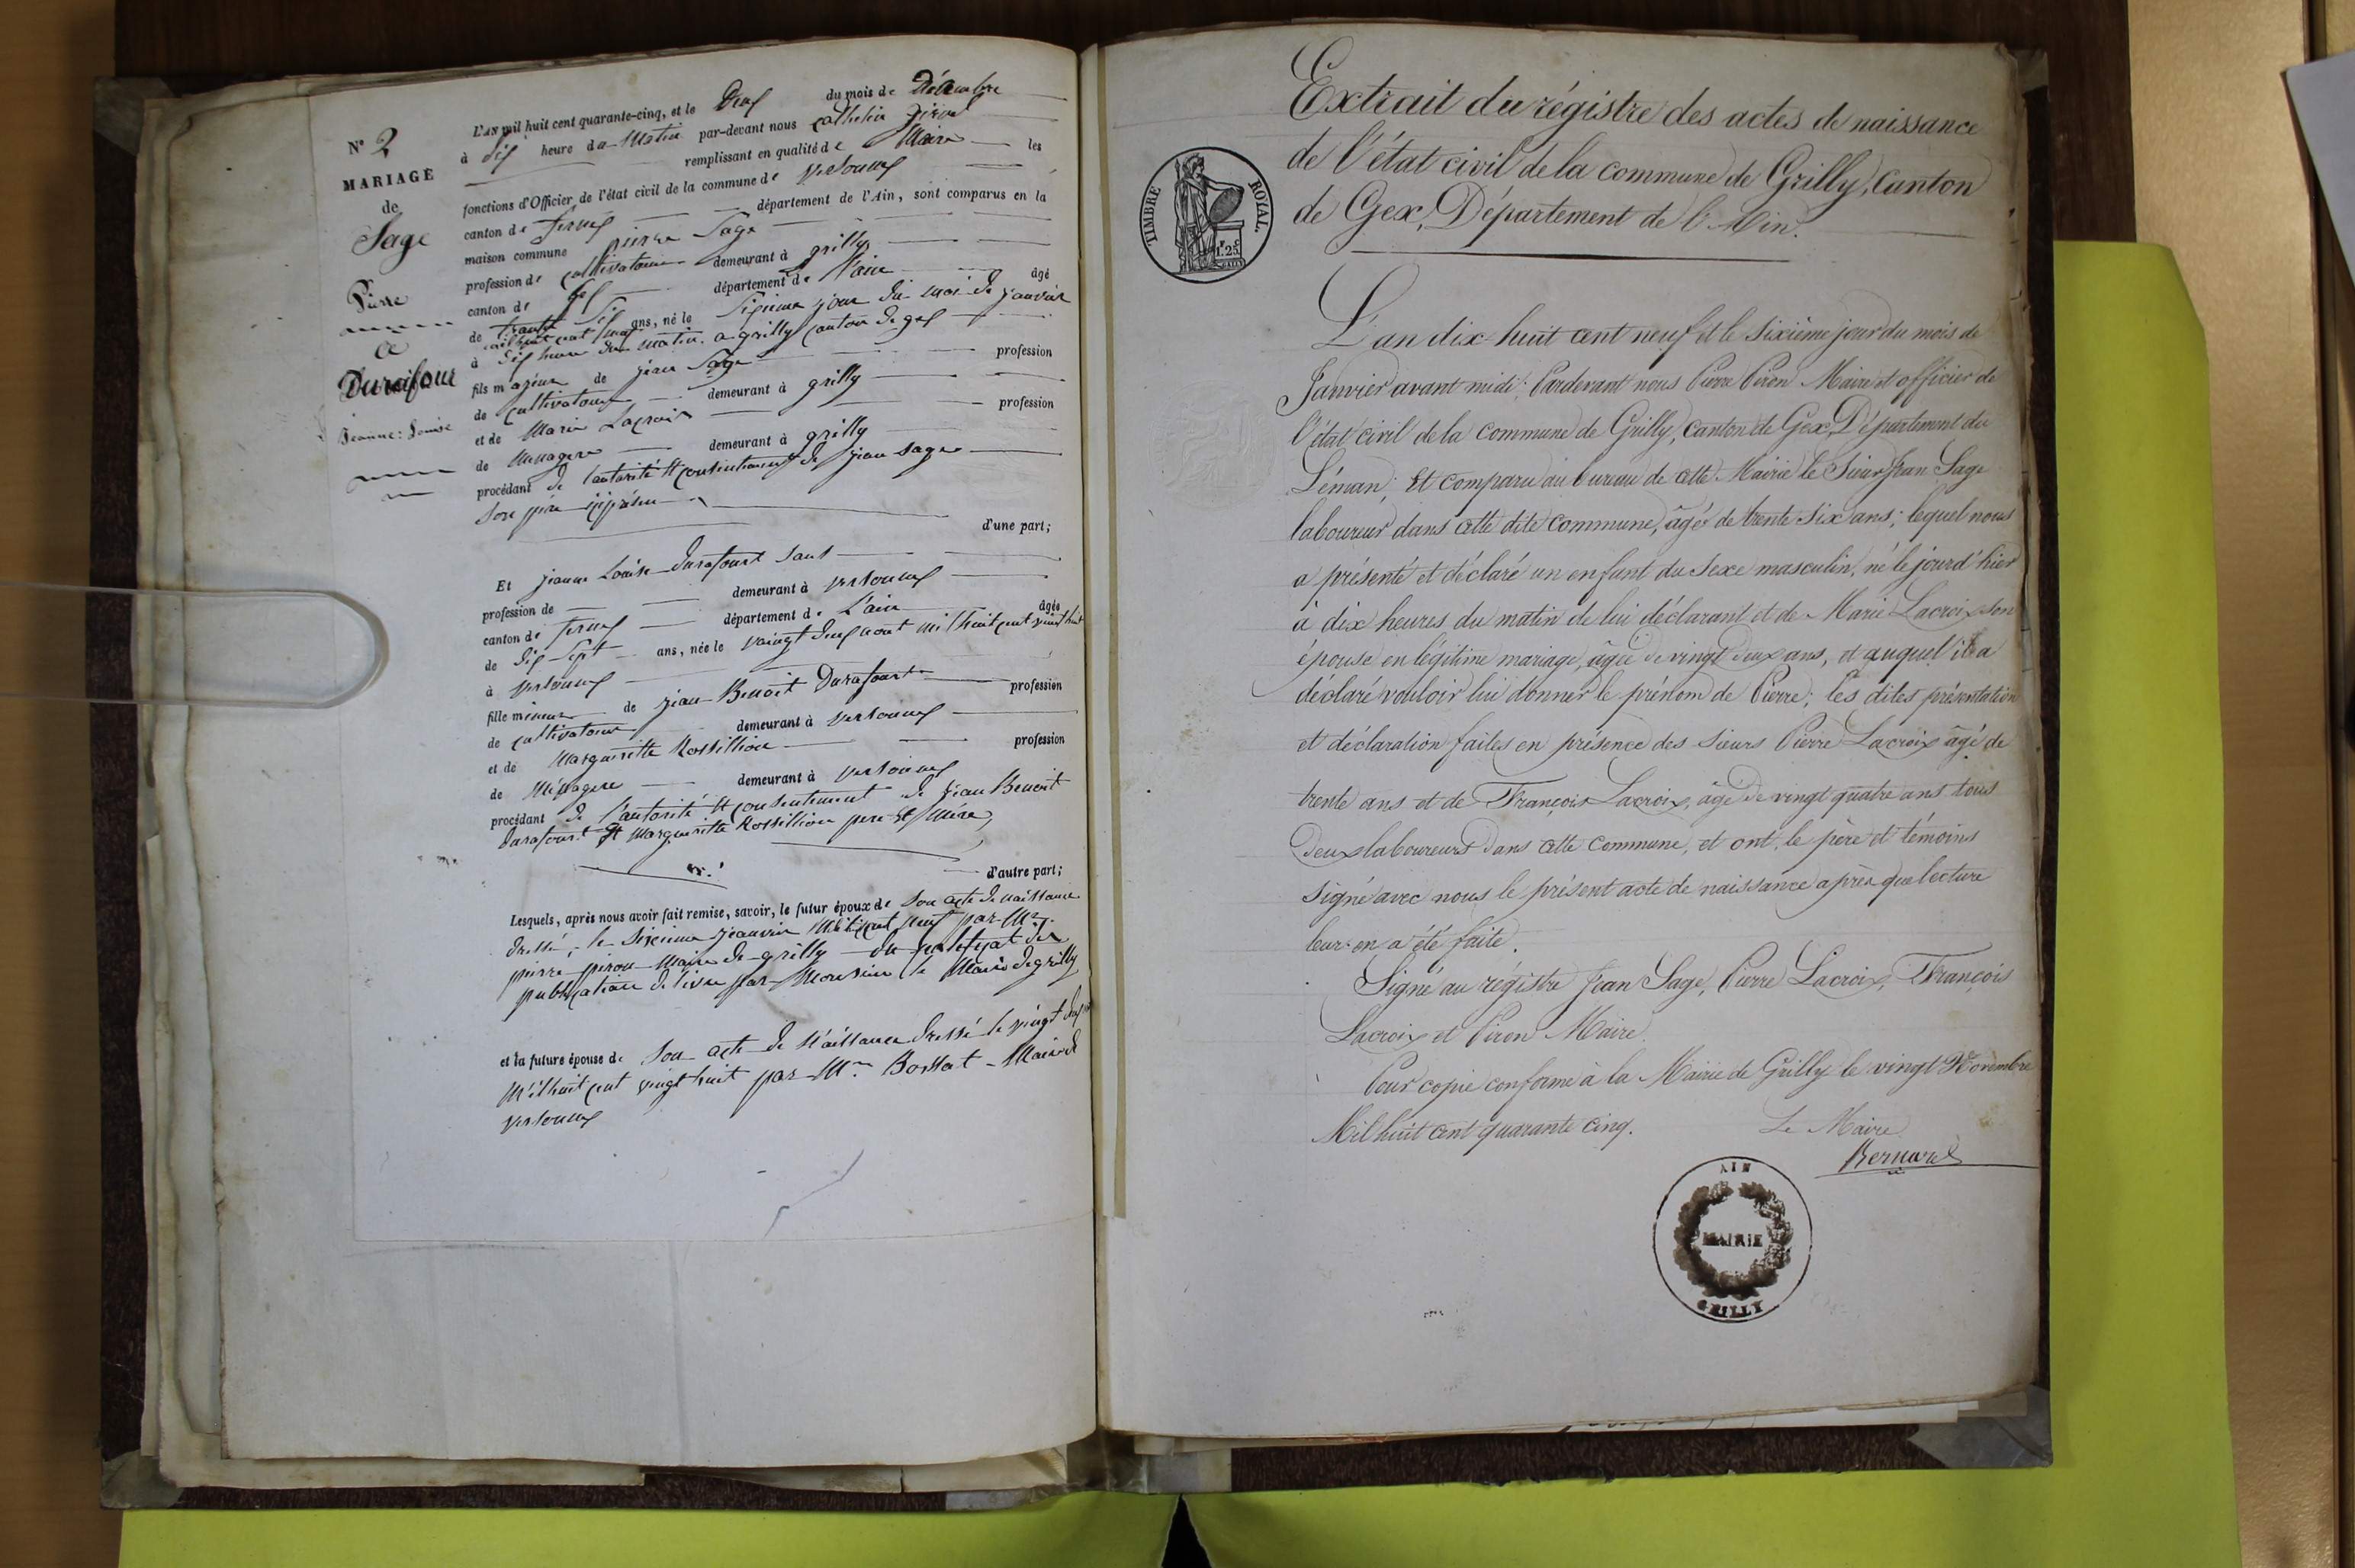 N° 2
MARIAGE
de
Sage
Pierre
et
Durafour
Jeanne: Louise
L'AN mil huit cent quarante-cinq, et le deux du mois de Décembre
à dix heure du Matin par-devant nous
remplissant en qualité de Maire les
fonctions d'Officier de l'état civil de la commune de Versonnex
canton de ferney département de l'Ain, sont comparus en la
maison commune pierre Sage
profession de cultivateur demeurant à grilly
canton de Gex département de l'ain âgé
de trante Six ans, né le Sixieme jour du moi de janvier
mil huit cent neuf
à dix heure du matin a grilly canton de gex
fils majeur de jean Sage profession
de cultivateur demeurant à grilly
et de Marie Lacroix profession
de Menagere demeurant à grilly
procédant de l'autorité et consentement de jean sage
son père
d'une part;
Et jeanne Louise durafourt sans
profession de demeurant à versonnex
canton de ferney département de L'ain âgée
de dix-Sept ans, née le vaingt deux aout mil huit cent vaint huit
à versonnex
fille mineure de jean Benoit Durafourt profession
de cultivateur demeurant à versonnex
et de Margueritte Rossillion profession
de Ménagere demeurant à versonnex
procédant de l'autorité et consentement de jean Benoit
Durafourt et Margueritte Rossillion pere et Mére
d'autre part;
Lesquels, après nous avoir fait remise, savoir, le futur époux de son acte de naissance
dressé, le Sixieme jeanvier Mil huit cent neuf par Mr.
pierre piron Maire de grilly
publication delivré par Monsieur le Maire de grilly
et la future épouse de son acte de Naissance dressé le vingt deux
Mil huit cent vingt huit par Mr. Bossat Maire de
versonnex
Extrait du régistre des actes de naissance
de l'état civil de la commune de Grilly, Canton
de Gex, Département de l'Ain.
TIMBRE ROYAL
1.25
L'an dix-huit cent neuf et le sixième jour du mois de
Janvier avant midi; Pardevant nous Pierre Piron Maire et officier de
l'état civil de la commune de Grilly, canton de Gex, Département du
Léman; Et comparu au bureau de cette Mairie le Sieur Jean Sage
laboureur dans cette dite commune, âgé de trente six ans; lequel nous
a présenté et déclaré un enfant du sexe masculin, né le jourd'hier
à dix heures du matin de lui déclarant et de Marie Lacroix son
épouse en légitime mariage, âgée de vingt deux ans, et auquel il a
déclaré vouloir lui donner le prénom de Pierre; les dites présentation
et déclaration faites en présence des sieurs Pierre Lacroix âgé de
trente ans et de François Lacroix, âgé de vingt quatre ans tous
deux laboureurs dans cette commune, et ont, le père et témoins
signé avec nous le présent acte de naissance après que lecture
leur en a été faite.
Signé au régistre Jean Sage, Pierre Lacroix, François
Lacroix et Piron Maire.
Pour copie conforme à la Mairie de Grilly le vingt Novembre
Mil huit cent quarante cinq. Le Maire
Bernard
AIN
MAIRIE
GRILLY